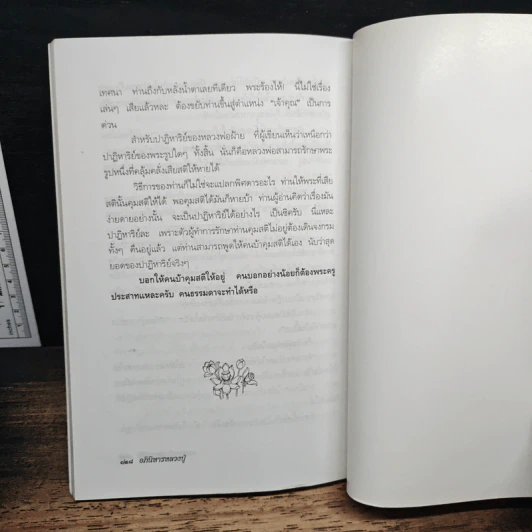 เทศนา ท่านถึงกับหลั่งน้ำตาเลยทีเดียว พระร้องไห้! นี่ไม่ใช่เรื่อง
เล่นๆ เสียแล้วหละ ต้องขยับท่านขึ้นสู่ตำแหน่ง “เจ้าคุณ” เป็นการ
ด่วน
สำหรับปาฏิหาริย์ของหลวงพ่อฝ้าย ที่ผู้เขียนเห็นว่าเหนือกว่า
ปาฏิหาริย์ของพระรูปใดๆ ทั้งสิ้น นั่นก็คือหลวงพ่อสามารถรักษาพระ
รูปหนึ่งที่คลุ้มคลั่งเสียสติให้หายได้
วิธีการของท่านก็ไม่ใช่จะแปลกพิศดารอะไร ท่านให้พระที่เสีย
สตินั้นคุมสติให้ได้ พอคุมสติได้มันก็หายบ้า ท่านผู้อ่านคิดว่าเรื่องมัน
ง่ายดายอย่างนั้น จะเป็นปาฏิหาริย์ได้อย่างไร เป็นซีครับ นี่แหละ
ปาฏิหาริย์ละ เพราะตัวผู้ทำการรักษาท่านคุมสติไม่อยู่ต้องเดินจงกรม
ทั้งๆ คืนอยู่แล้ว แต่ท่านสามารถพูดให้คนบ้าคุมสติได้เอง นับว่าสุด
ยอดของปาฏิหาริย์จริงๆ
บอกให้คนบ้าคุมสติให้อยู่ คนบอกอย่างน้อยก็ต้องพระครู
ประสาทแหละครับ คนธรรมดาจะทำได้หรือ
อภินิหารหลวงปู่